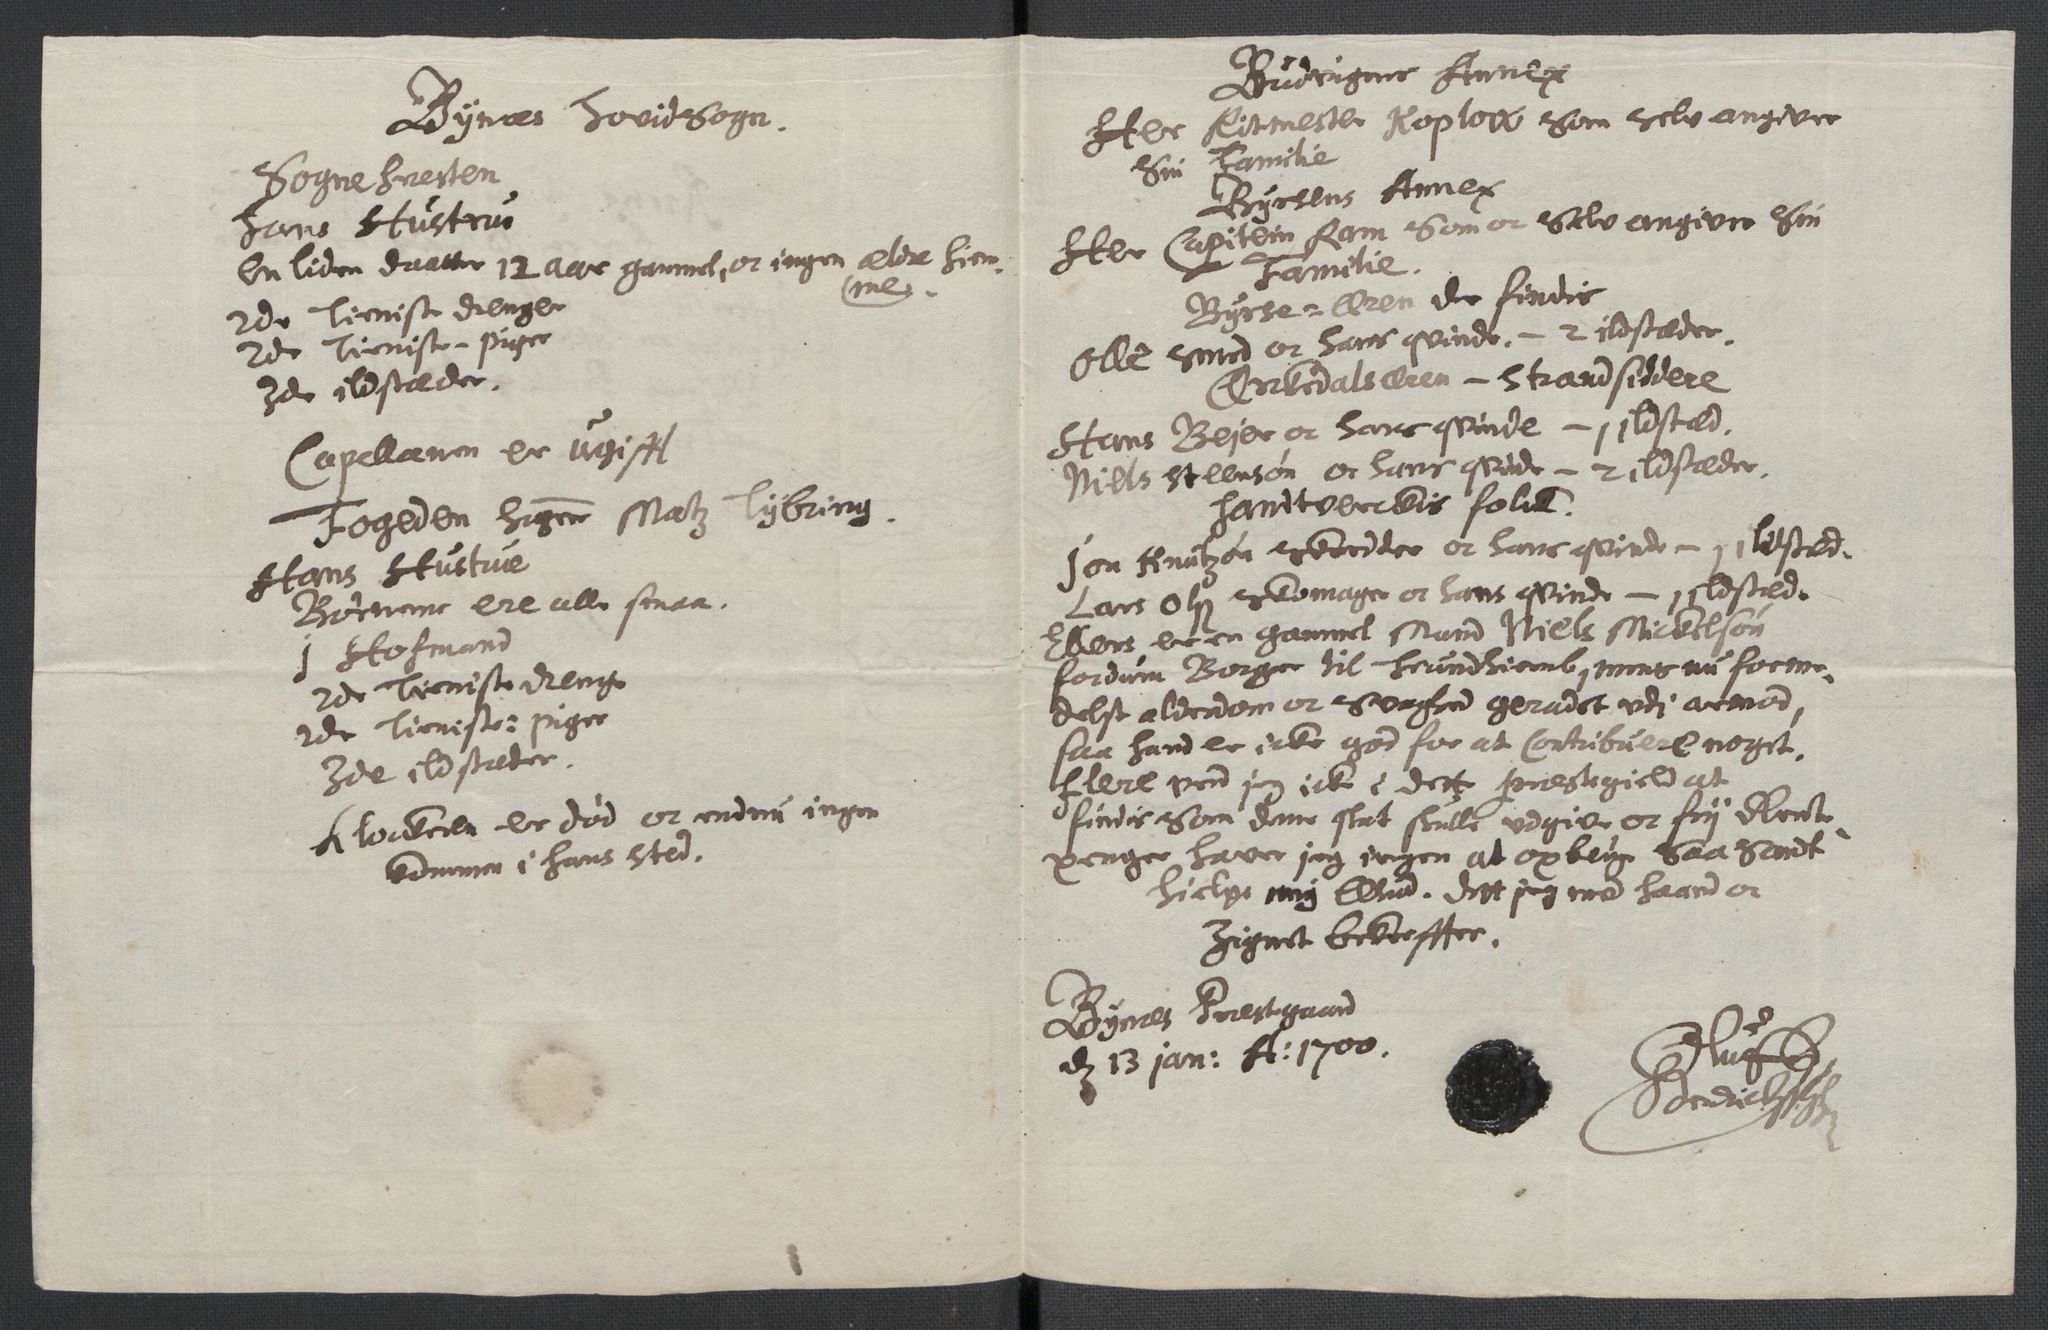 Bÿnes HovidSogn.
Sognepresten
Hans Hustrü
En liden daatter 12 aar gammel, oc ingen ældre hiem-
me.
2de tieniste drenger
2de tieniste-piger
3de ildstæder.
Capellanen er ügifft
Fogeden Matz Lÿbring.
Hans Hustrüe
Börnene ere alle smaa.
1 Hofmand
2de tieniste dreng
2de tieniste: piger
3de ildstæder.
Klockeren er död oc endnu ingen
kommen i hans sted.
Büdvigens Annex
Her Ritmester Koplow som selv angiver
sin Familie
Bÿrsens Annex
Her Capitein Ram som oc selv angiver sin
Familie.
Bÿrse-Ören der findis
Olle smed oc hans qvinde. - 2 ildstæder.
Örkedalsören - Strandsiddere
Hans Bejer oc hans qvinde - 1 ildstæd.
Niels Steensön oc hans qvinde - 2 ildstæder.
Handtverckis folck.
Jon Knutzön skredder oc hans qvinde - 1 ildstæd.
Lars Ols skomager oc hans qvinde - 1 ildstæd.
Ellers er en gammel Mand Niels Mickelsön
fordum Borger til Trundhiemb, mens nu forme-
delst alderdom oc svaghed geradet udj armod,
saa hand er icke god for at Contribuere noget.
Flere veed jeg icke i dette prestegield at
findis som denne skat skulle udgive oc frÿ Rente
penger haver jeg ingen at opberge saa sandt
hielpe mig Gud. Dett jeg med haand oc
Zignet bekreffter.
Bÿnes Prestgaard
dz 13 jan: A: 1700.
Hendrichssön